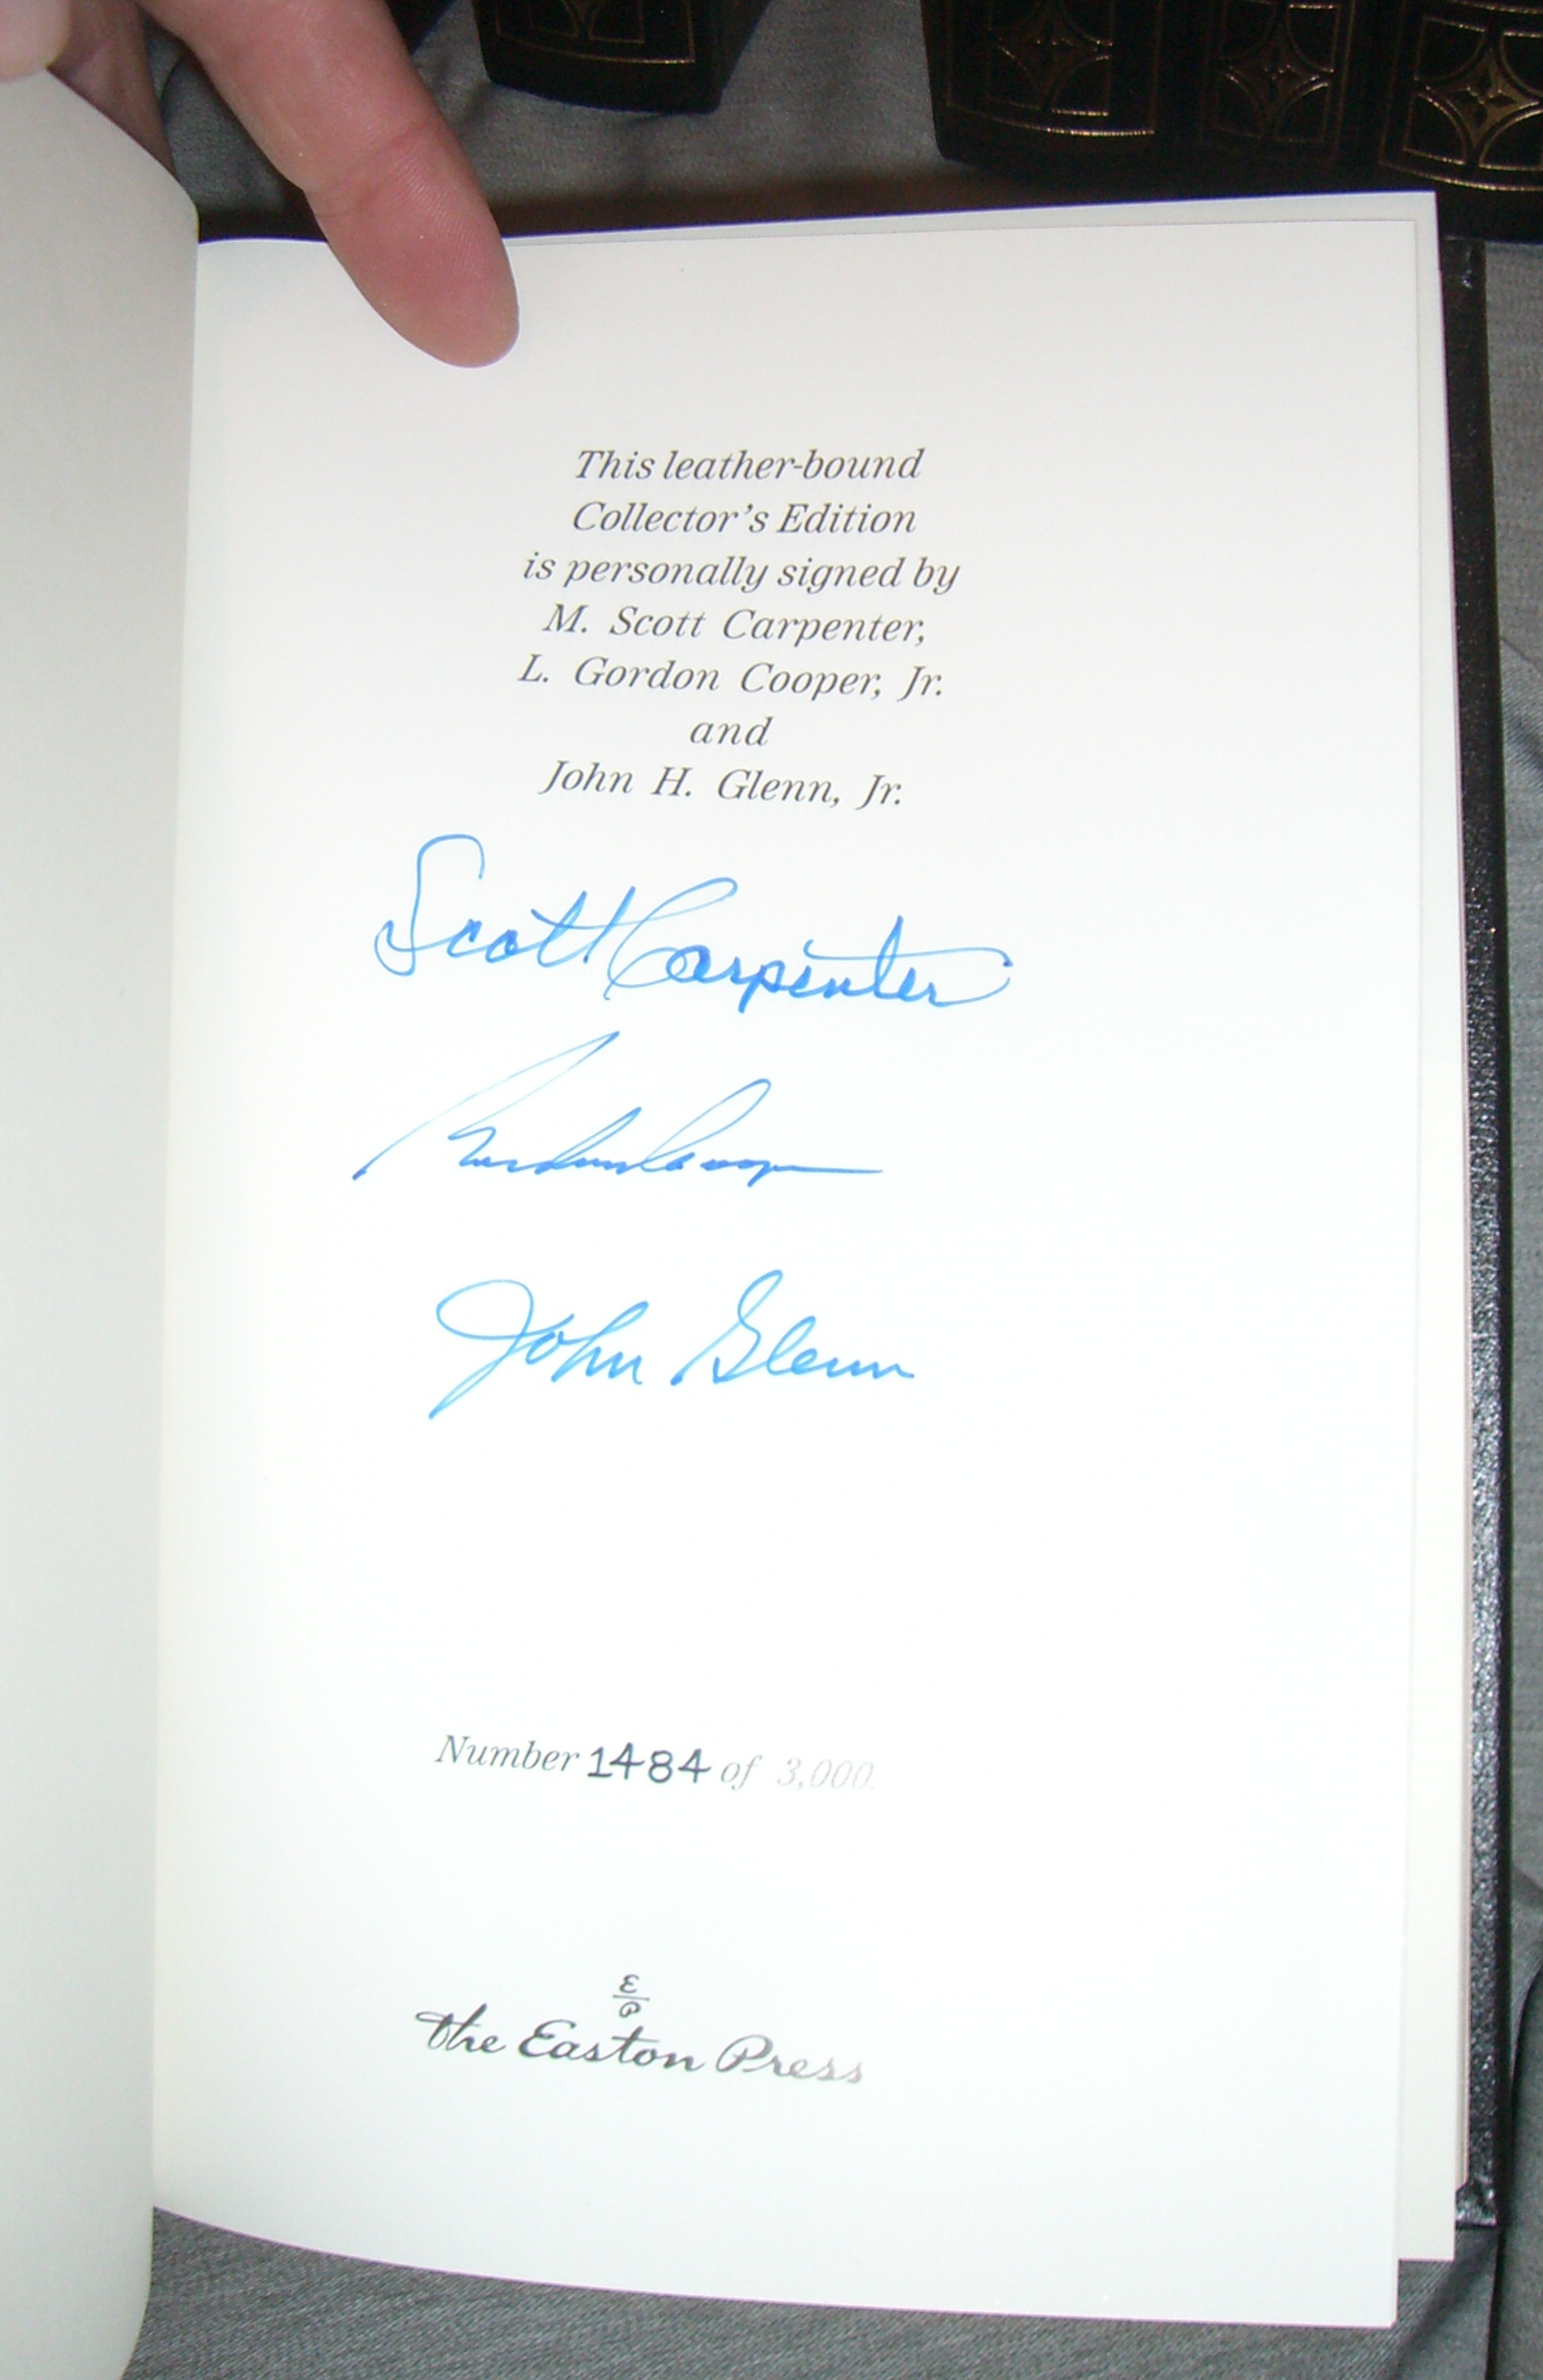 This leather-bound
Collector's Edition
is personally signed by
M. Scott Carpenter,
L. Gordon Cooper, Jr.
and
John H. Glenn, Jr.
Scott Carpenter
Gordon Cooper
John Glenn
Number 1484 of 3,000.
E/P
The Easton Press